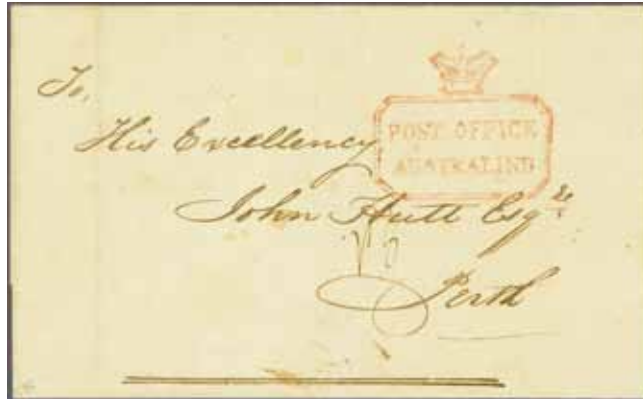 To,
His Excellency
POST OFFICE
AUSTRALIND
John Hutt Esqre
Perth